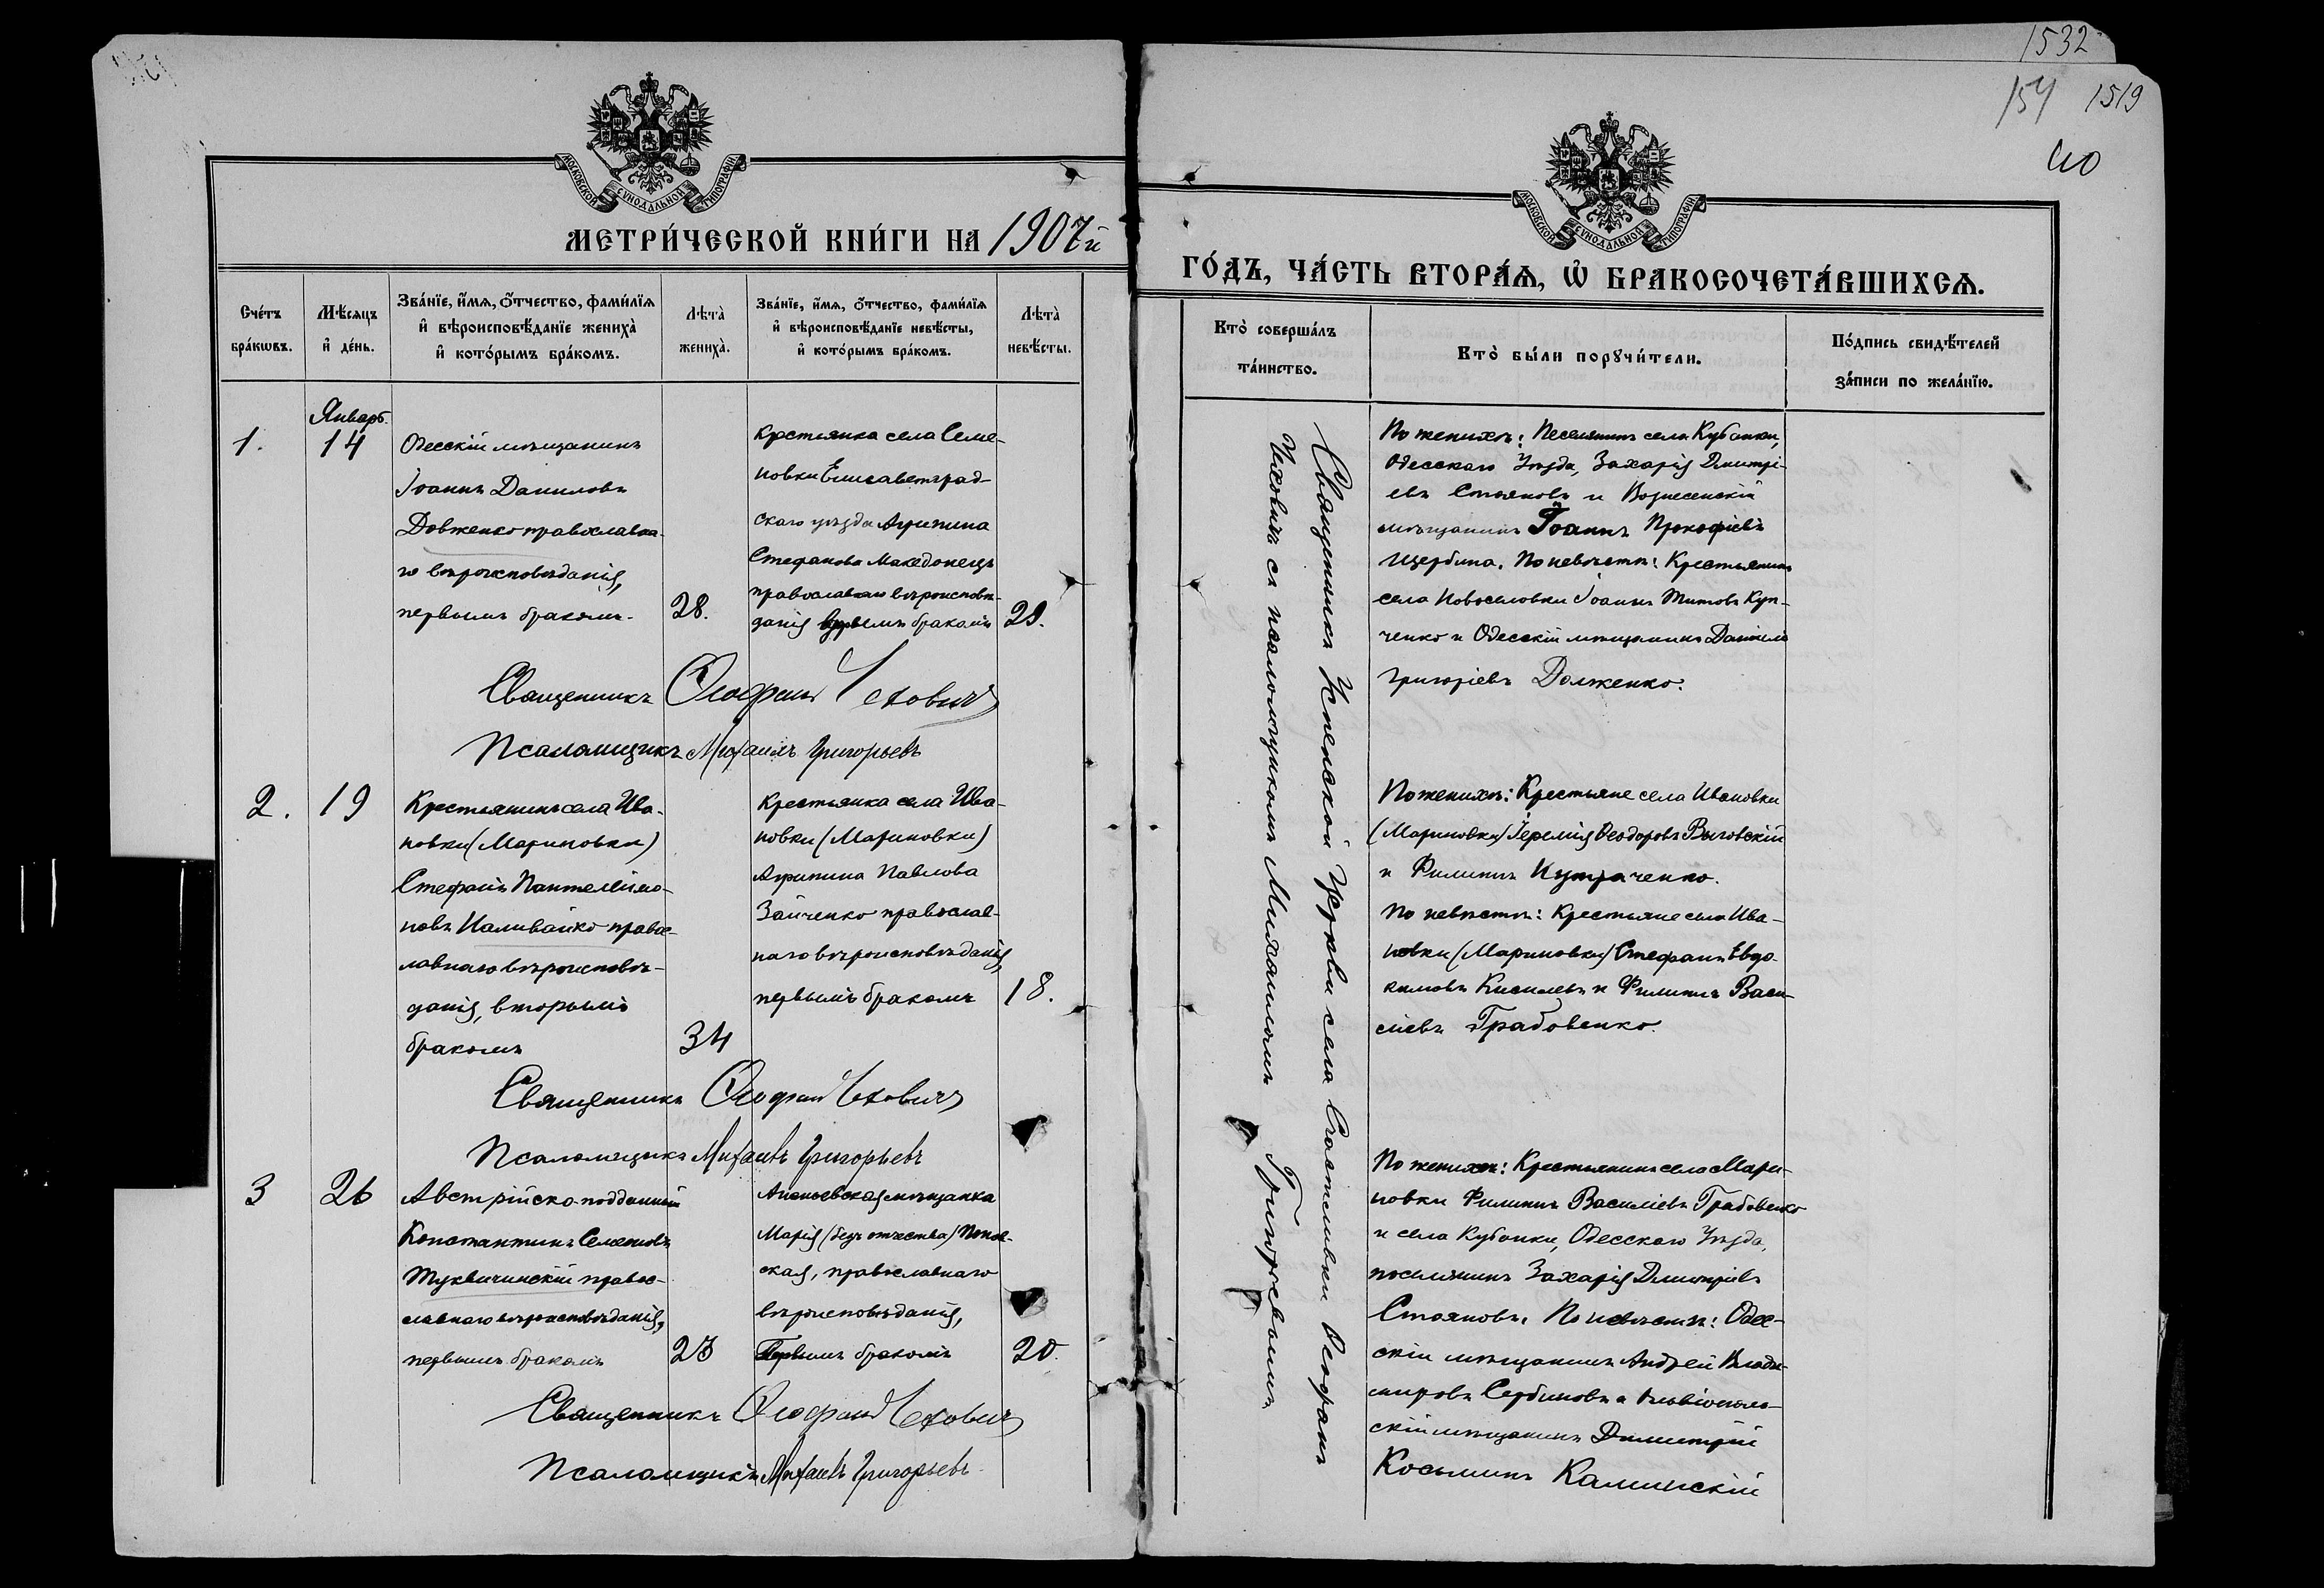 1532
154 1519
40
МОСКОВСКОЙ СѴНОДАЛЬНОЙ ТИПОГРАФІИ
МЕТРИ́ЧЕСКОЙ КНИ́ГИ НА 1907й
Сче́тъ бра́кѡвъ.
Мѣ́сяцъ и҆ де́нь.
Зва́нїе, и҆́мѧ, ѻ҆́тчество, фами́лїѧ
и҆ вѣроисповѣ́данїе жениха̀
и҆ кото́рымъ бра́комъ.
Лѣта̀ жениха̀.
Зва́нїе, и҆́мѧ, ѻ҆́тчество, фами́лїѧ
и҆ вѣроисповѣ́данїе невѣ́сты,
и҆ кото́рымъ бра́комъ.
Лѣта̀ невѣ́сты.
Январь.
1. 14
Одесскій мѣщанинъ
Іоаннъ Даниловъ
Довженко православна-
го вѣроисповѣданія,
первымъ бракомъ.
28.
Крестьянка села Семе-
новки Елисаветград-
скаго уѣзда Агрипина
Стефанова Македонецъ
православнаго вѣроисповѣ-
данія бракомъ
29.
Священникъ Ѳеофанъ Чехович
Псаломщикъ Михаилъ Григорьевъ
2. 19
Крестьянинъ села Ива-
новки (Мариновки)
Стефанъ Пантелеимо-
новъ Наливайко правос-
лавнаго вѣроисповѣ-
данія, вторымъ
бракомъ
34
Крестьянка села Ива-
новки (Мариновки)
Агрипина Павлова
Зайченко православ-
наго вѣроисповѣданія,
первымъ бракомъ
18.
Священникъ Ѳеофан Чехович
Псаломщикъ Михаилъ Григорьевъ
3 26
Австрійско-подданный
Константинъ Семеновъ
Туквичинскій правос-
славнаго вѣроисповѣданія,
первымъ бракомъ
23
Ананьевская мѣщанка
Марія (безъ отчества) Попов-
ская, православнаго
вѣроисповѣданія,
Первымъ бракомъ
20.
Священникъ Ѳеофан Чехович
Псаломщикъ Михаилъ Григорьевъ
МОСКОВСКОЙ СѴНОДАЛЬНОЙ ТИПОГРАФІИ
ГО́ДЪ, ЧА́СТЬ ВТОРА́Ѧ, Ѽ БРАКОСОЧЕТА́ВШИХСѦ.
Кто̀ соверша́лъ
та́инство.
Кто̀ бы́ли порꙋчи́тели.
По́дпись свидѣ́телей
за́писи по жела́нїю.
Священникъ Успенской Церкви села Счастливки Ѳеофанъ
Чеховичъ съ псаломщикомъ Михаиломъ Григорьевымъ
По женихѣ: Поселянинъ села Кубанки,
Одесскаго Уѣзда, Захарія Дмитрі-
евъ Стояновъ и Вознесенскій
мѣщанинъ Іоаннъ Прокофіевъ
Щербина. По невѣстѣ: Крестьянинъ
села Новоселовки Іоаннъ Титовъ Куп-
ченко и Одесскій мѣщанинъ Даніилъ
Григоріевъ Долженко.
По женихѣ: Крестьяне села Ивановки
(Мариновки) Іеремія Ѳеодоровъ Выговскій
и Филиппъ
По невѣстѣ: Крестьяне села Ива-
новки (Мариновки) Стефанъ Евдо-
кимовъ Киселевъ и Филиппъ Васи-
ліевъ Грабовенко.
По женихѣ: Крестьянинъ села Мари-
новки Филиппъ Василіевъ Грабовенко
и села Кубанки, Одесскаго Уѣзда,
поселянинъ Захарія Димитріевъ
Стояновъ. По невѣстѣ: Одес-
скій мѣщанинъ Андрей Влади-
мировъ Сербиновъ и
скій мѣщанинъ Димитрій
Косьминъ Калинскій